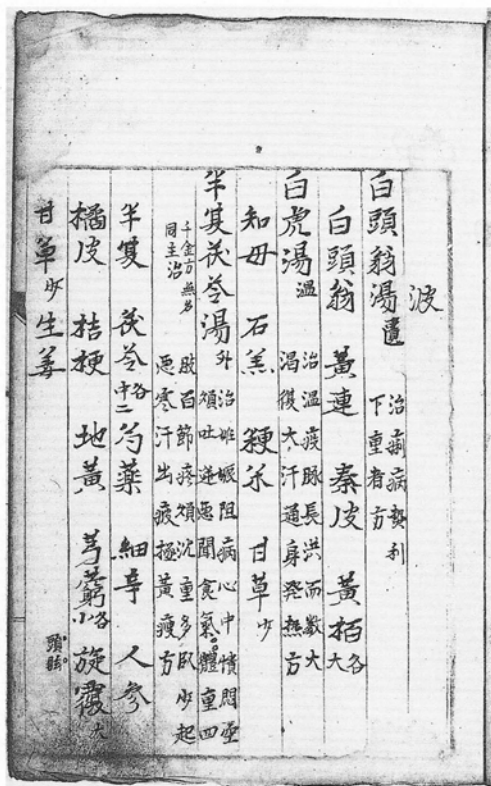 波
白頭翁湯 匱 治痢病熱利
下重者方
白頭翁 黃連 秦皮 黃栢 各大
白虎湯 温 治温疫脉長洪而數大
渴復大汗通身発熱方
知母 石羔 粳米 甘草 少
半夏茯苓湯 外 治妊娠阻病心中憒悶空
煩吐逆惡聞食氣體重四
千金方無名
同主治
肢百節疼煩沈重多臥少起
惡寒汗出疲極黃瘦方
半夏 茯苓 各中二 芍藥 細辛 人參
橘皮 桔梗 地黃 芎藭 各小 旋覆 大
頭眩
甘草 少 生姜